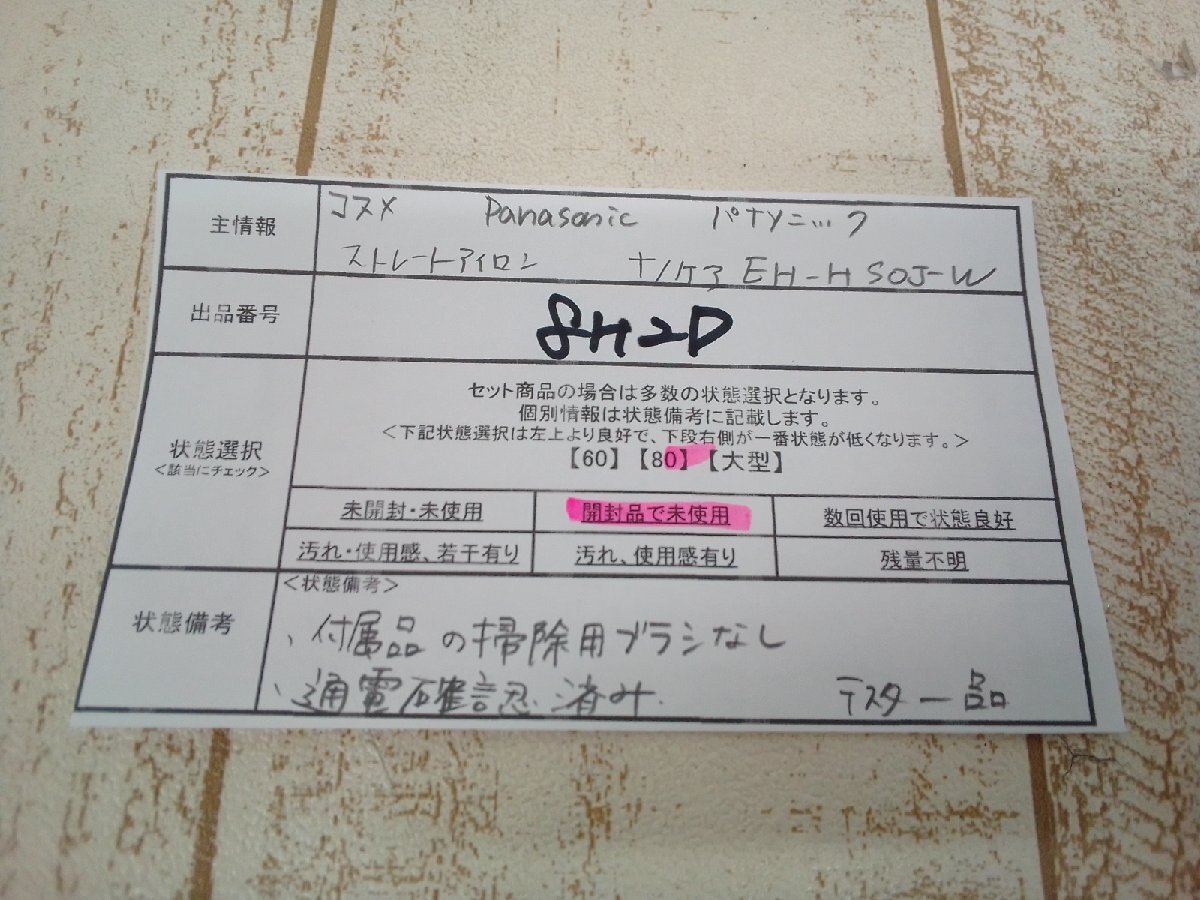 主情報
コスメ Panasonic パナソニック
ストレートアイロン ナノケア EH-HS0J-W
出品番号
8H2D
状態選択
<該当にチェック>
セット商品の場合は多数の状態選択となります。
個別情報は状態備考に記載します。
<下記状態選択は左上より良好で、下段右側が一番状態が低くなります。>
【60】【80】【大型】
未開封・未使用 開封品で未使用 数回使用で状態良好
汚れ・使用感、若干有り 汚れ、使用感有り 残量不明
状態備考
<状態備考>
、付属品の掃除用ブラシなし
、通電確認済み. テスター品